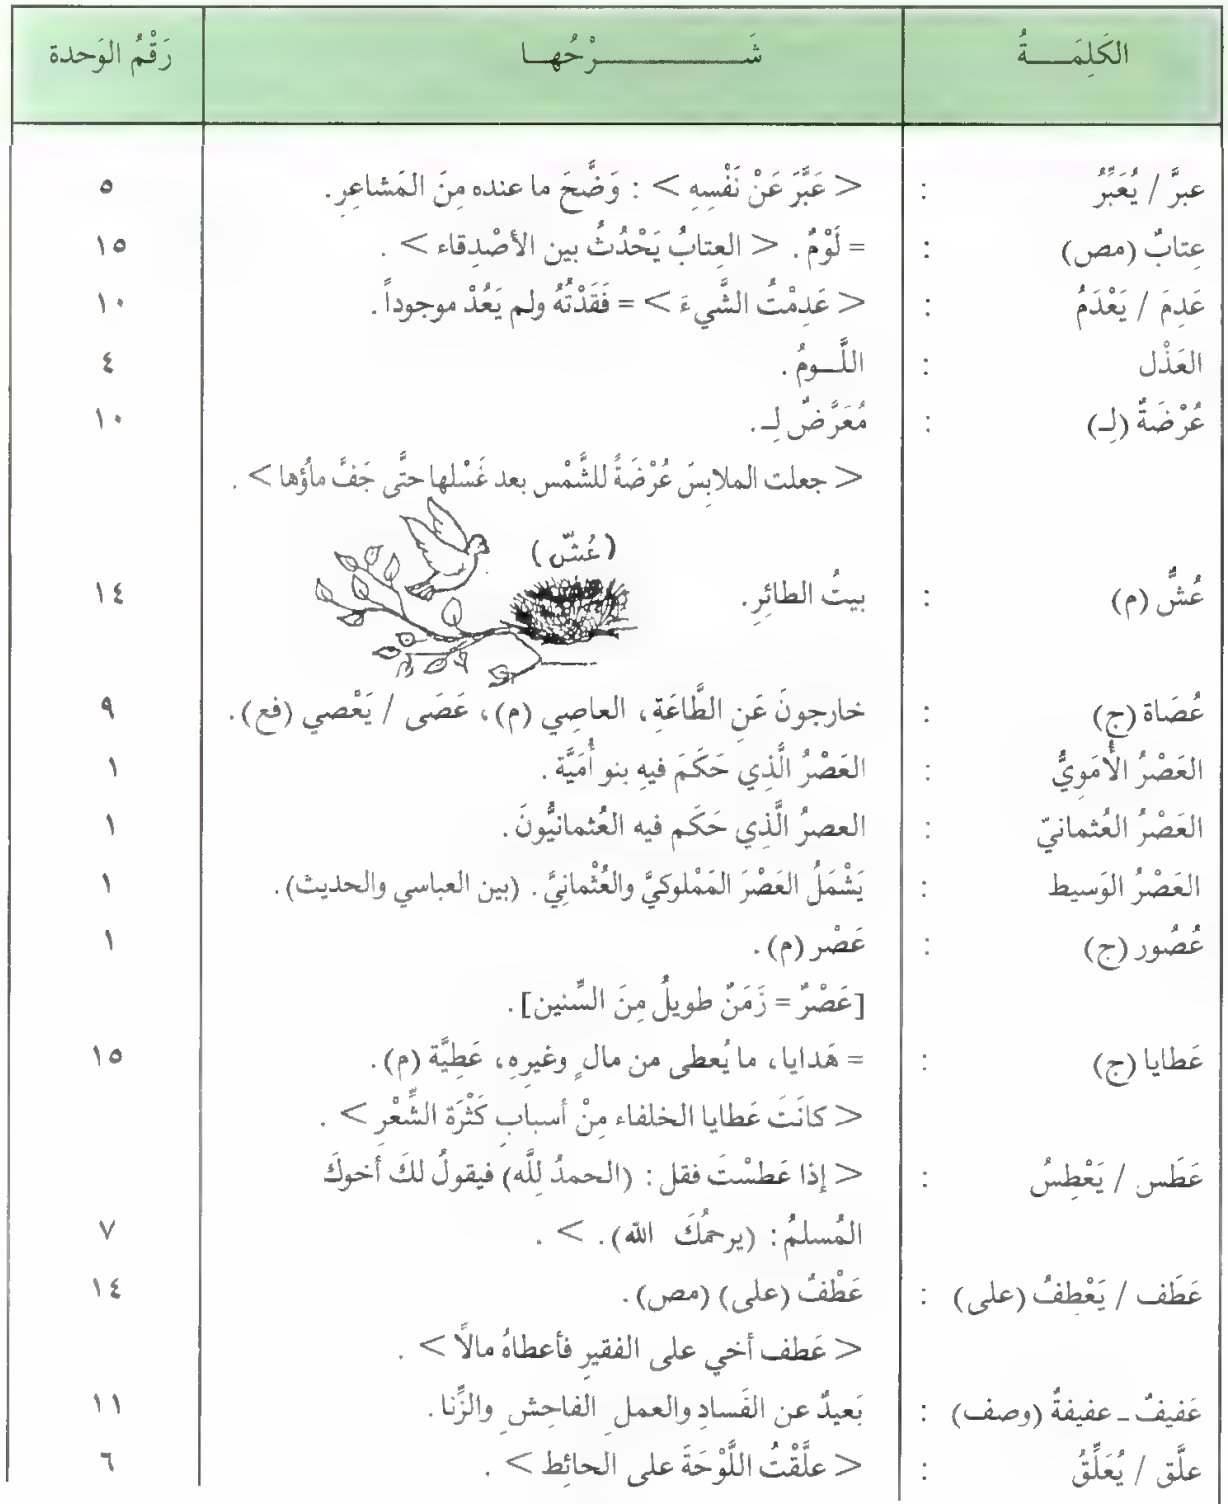 الكَلِمَــــةُ شَــــــــــرْحُهـا رَقْمُ الوَحدة
عبرَّ / يُعَبِّرُ : < عَبَّرَ عَنْ نَفْسِهِ > : وَضَّحَ ما عنده مِنَ المَشاعِرِ . ٥
عِتابٌ (مص) : = لَوْمٌ . < العِتابُ يَحْدُثُ بين الأصْدِقاء > . ١٥
عَدِمَ / يَعْدَمُ : < عَدِمْتُ الشَّيءَ > = فَقَدْتُهُ ولم يَعُدْ موجوداً . ١٠
العَذْل : اللَّــومُ . ٤
عُرْضَةٌ (لِـ) : مُعَرَّضٌ لِـ . ١٠
< جعلت الملابِسَ عُرْضَةً للشَّمْس بعد غَسْلها حتَّى جَفَّ ماؤها > .
(عُشّ)
عُشٌّ (م) : بيتُ الطائِرِ . ١٤
عُصَاة (ج) : خارجونَ عَنِ الطَّاعَةِ ، العاصِي (م) ، عَصَى / يَعْصي (فع) . ٩
العَصْرُ الأُمَوِيُّ : العَصْرُ الَّذِي حَكَمَ فيهِ بنو أُمَيَّة . ١
العَصْرُ العُثمانيّ : العصرُ الَّذِي حَكَم فيه العُثمانيُّونَ . ١
العَصْرُ الوَسيط : يَشْمَلُ العَصْرَ المَمْلوكيَّ والعُثْمانِيَّ . (بين العباسي والحديث) . ١
عُصُور (ج) : عَصْر (م) . ١
[عَصْرٌ = زَمَنٌ طويلُ مِنَ السِّنين] .
عَطايا (ج) : = هَدايا، ما يُعطى من مالٍ وغيرِهِ، عَطِيَّة (م) . ١٥
< كانَتَ عَطايا الخلفاء مِنْ أسبابِ كَثْرَة الشِّعْرِ > .
عَطَس / يَعْطِسُ : < إذا عَطسْتَ فقل : (الحمدُ لِلَّه) فيقولُ لكَ أخوكَ
المُسلمُ : (يرحمُكَ الله) . > . ٧
عَطَف / يَعْطِفُ (على) : عَطْفٌ (على) (مص) . ١٤
< عَطف أخي على الفقيرِ فأعطاهُ مالًا > .
عَفيفٌ ـ عفيفةٌ (وصف) : بَعيدٌ عن الفَسادِ والعملِ الفاحِشِ والزِّنا . ١١
علَّق / يُعَلِّقُ : < علَّقْتُ اللَّوْحَةَ على الحائِط > . ٦